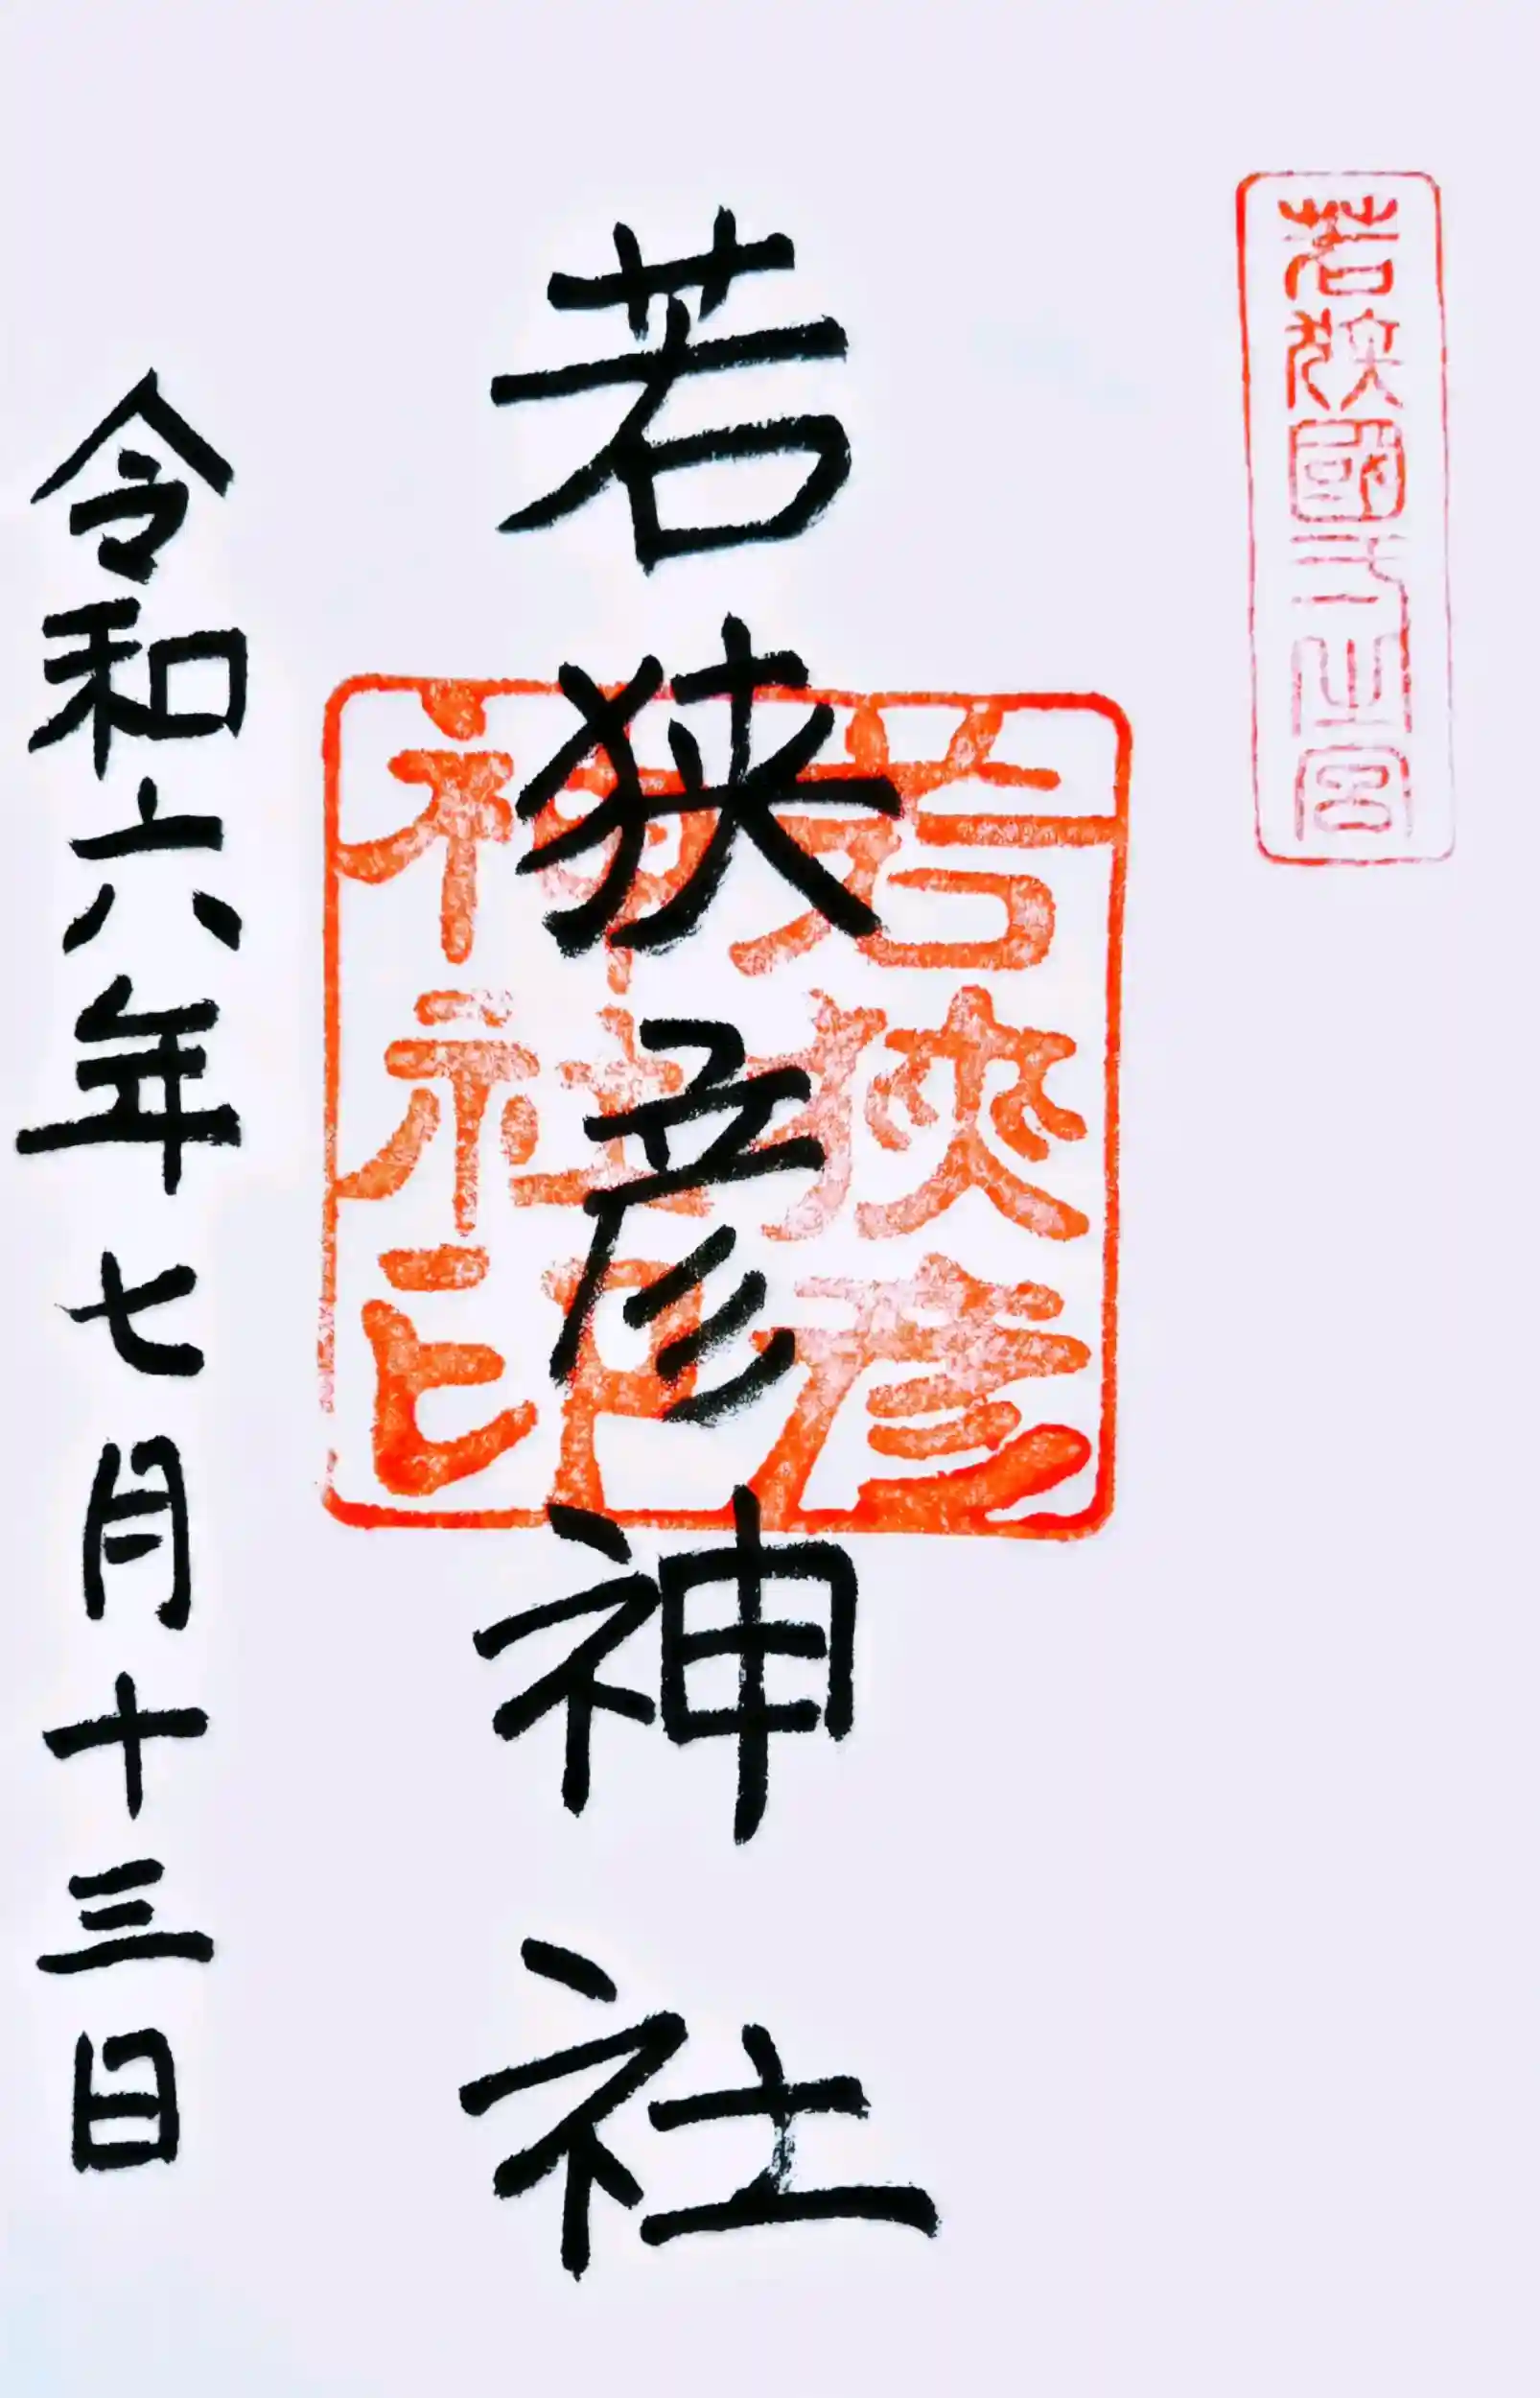 若狭國一之宮
若狭彦神社
若狹彦
神社印
令和六年七月十三日